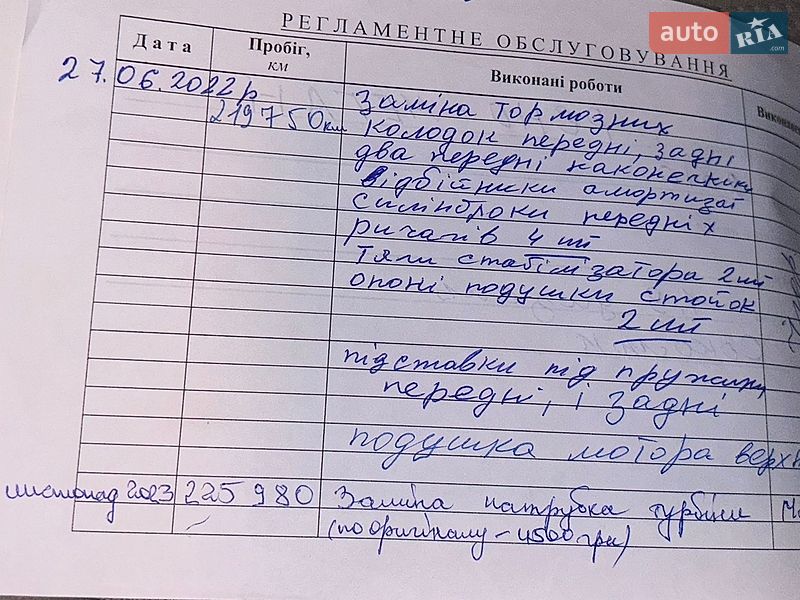 РЕГЛАМЕНТНЕ ОБСЛУГОВУВАННЯ
auto RIA .com
Дата
Пробіг, км
Виконані роботи
27.06.2022р
219750км
Заміна тормозних
колодок передні, задні
два передні наконечники
відбійники амортизаї
силінблоки передніх
ричагів 4 шт
Тяги стабілізатора 2 шт
опоні подушки стойок
2 шт
підставки під пружини
передні, і задні
подушка мотора верхн
листопад 2023 225 980 Заміна патрубка турбіни
(по оригіналу - 4500 грн)